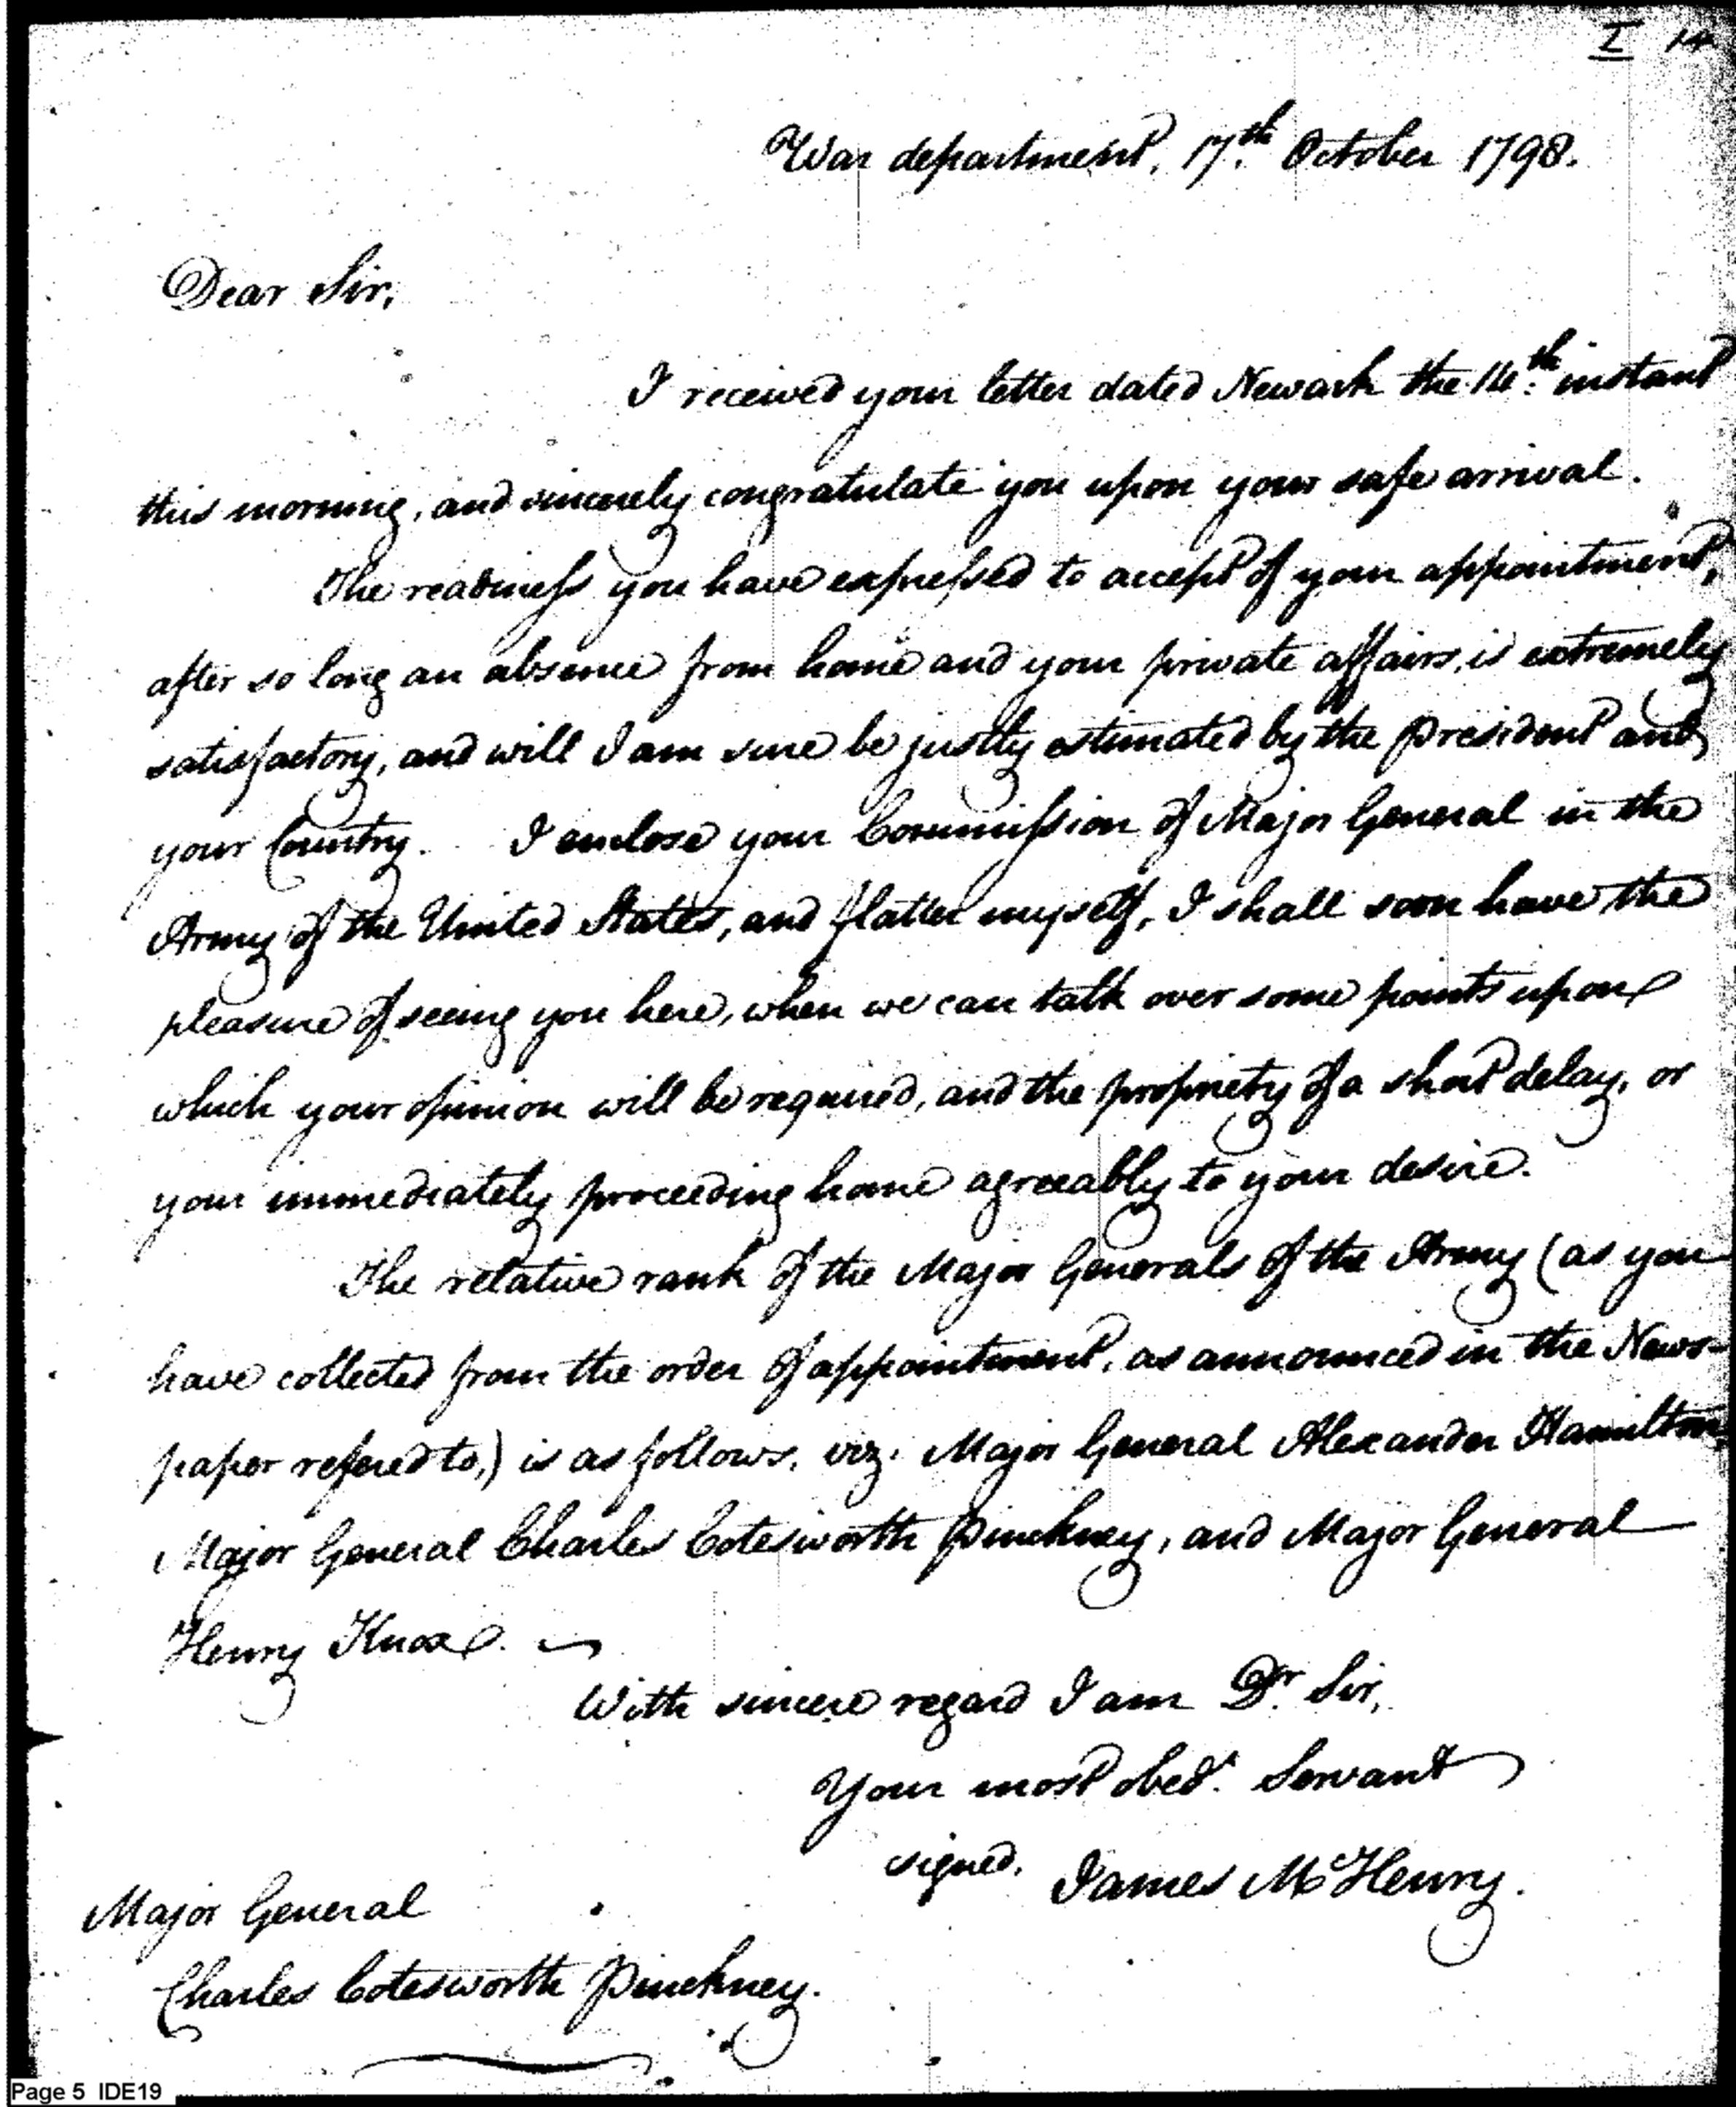 I 14
War department, 17.th October 1798.
Dear Sir,
I received your letter dated Newark the 14.th instant
this morning, and sincerely congratulate you upon your safe arrival.
The readiness you have expressed to accept of your appointment,
after so long an absence from home and your private affairs, is extremely
satisfactory, and will I am sure be justly estimated by the President and
your Country. I enclose your Commission of Major General in the
Army of the United States, and flatter myself, I shall soon have the
pleasure of seeing you here, when we can talk over some points upon
which your opinion will be required, and the propriety of a short delay, or
your immediately proceeding home agreeably to your desire.
The relative rank of the Major Generals of the Army (as you
have collected from the order of appointment, as announced in the News-
paper refered to,) is as follows, viz. Major General Alexander Hamilton
Major General Charles Cotesworth Pinckney, and Major General
Henry Knox.
With sincere regard I am Dr. Sir,
Your most obedt. Servant
signed, James McHenry.
Major General
Charles Cotesworth Pinckney.
Page 5 IDE19